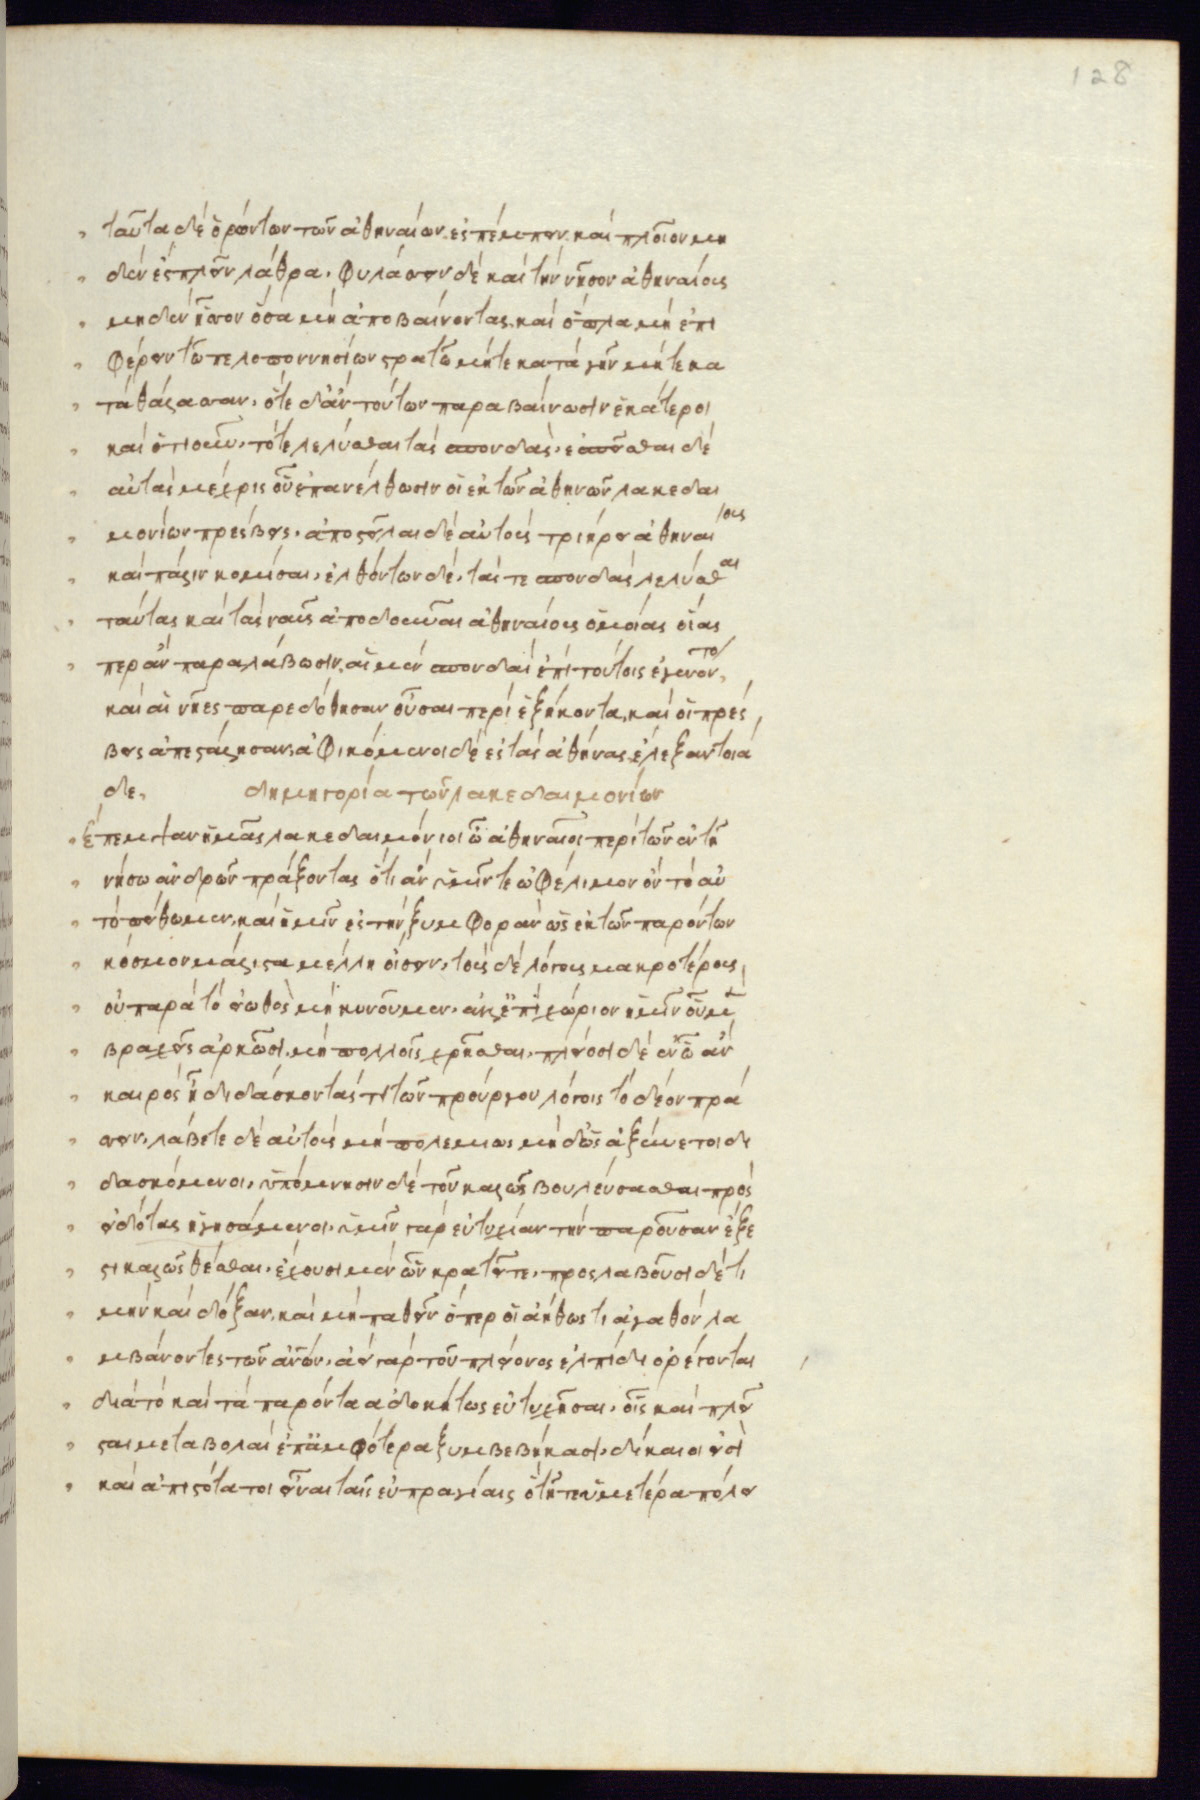 128
ταῦτα δὲ ὁρώντων τῶν ἀθηναίων ἐσπέμπειν καὶ πλοῖον μη
δὲν ἐσπλεῖν λάθρα· φυλάσσειν δὲ καὶ τὴν νῆσον ἀθηναίους
μηδὲν ἧσσον ὅσα μὴ ἀποβαίνοντας· καὶ ὅπλα μὴ ἐπι
φέρειν τῶ πελοποννησίων στρατῶ μήτε κατὰ γῆν μήτε κα
τὰ θάλασσαν· ὅτι δ' ἂν τούτων παραβαίνωσιν ἑκάτεροι
καὶ ὁτιοῦν· τότε λελύσθαι τὰς σπονδάς· ἐσπεῖσθαι δὲ
αὐτὰς μέχρις οὗ ἐπανέλθωσιν οἱ ἐκ τῶν ἀθηνῶν λακεδαι
μονίων πρέσβεις· ἀποστεῖλαι δὲ αὐτοὺς τριήρει ἀθηναίους
καὶ πάλιν κομίσαι· ἐλθόντων δὲ, τάς τε σπονδὰς λελύσθαι
ταύτας καὶ τὰς ναῦς ἀποδοῦναι ἀθηναίους ὁμοίας οἵας
περ ἂν παραλάβωσιν· αἱ μὲν σπονδαὶ ἐπὶ τούτοις ἐγένοντο,
καὶ αἱ νῆες παρεδόθησαν οὖσαι περὶ ἑξήκοντα, καὶ οἱ πρέσ
βεις ἀπεστάλησαν· ἀφικόμενοι δὲ ἐς τὰς ἀθήνας ἔλεξαν τοιά
δε. δημηγορία τῶν λακεδαιμονίων
Ἔπεμψαν ἡμᾶς λακεδαιμόνιοι ὦ ἀθηναῖοι περὶ τῶν ἐν τῇ
νήσω ἀνδρῶν πράξοντας ὅτι ἂν ὑμῖν τε ὠφέλιμον ὂν τὸ αὐ
τὸ πείθωμεν, καὶ ἡμῖν ἐς τὴν ξυμφορὰν ὡς ἐκ τῶν παρόντων
κόσμον μάλιστα μέλλῃ οἴσειν· τοὺς δὲ λόγους μακροτέρους
οὐ παρὰ τὸ εἰωθὸς μηκυνοῦμεν· ἀλλ' ἐπιχώριον ἡμῖν οὗ μὲν
βραχεῖς ἀρκῶσι, μὴ πολλοῖς χρῆσθαι· πλείοσι δὲ ἐν ᾧ ἂν
καιρὸς ᾖ διδάσκοντάς τι τῶν προύργου λόγοις τὸ δέον πρά
σσειν· λάβετε δὲ αὐτοὺς μὴ πολεμίως μηδ' ὡς ἀξύνετοι δι
δασκόμενοι· ὑπόμνησιν δὲ τοῦ καλῶς βουλεύσασθαι πρὸς
εἰδότας ἡγησάμενοι· ὑμῖν γὰρ εὐτυχίαν τὴν παροῦσαν ἔξε
στι καλῶς θέσθαι· ἔχουσι μὲν ὧν κρατεῖτε, προσλαβοῦσι δὲ τι
μὴν καὶ δόξαν, καὶ μὴ παθεῖν ὅπερ οἱ ἀήθως τι ἀγαθὸν λα
μβάνοντες τῶν ἀνῶν· ἀεὶ γὰρ τοῦ πλείονος ἐλπίδι ὀρέγονται
διὰ τὸ καὶ τὰ παρόντα ἀδοκήτως εὐτυχῆσαι· οἷς καὶ πλεῖ
σται μεταβολαὶ ἐπ' ἀμφότερα ξυμβεβήκασι, δίκαιοι εἰσὶ
καὶ ἀπιστότατοι εἶναι ταῖς εὐπραγίαις ὃ τῇ τε ὑμετέρα πόλει